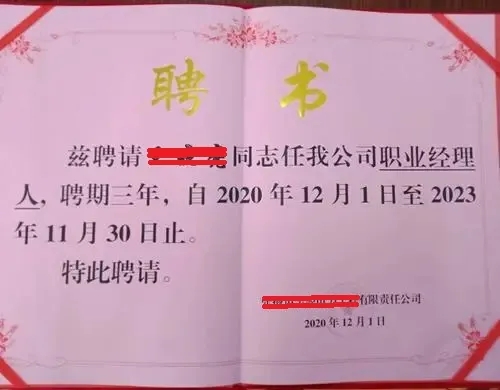 聘书
兹聘请同志任我公司职业经理
人，聘期三年，自2020年12月1日至2023
年11月30日止。
特此聘请。
有限责任公司
2020年12月1日